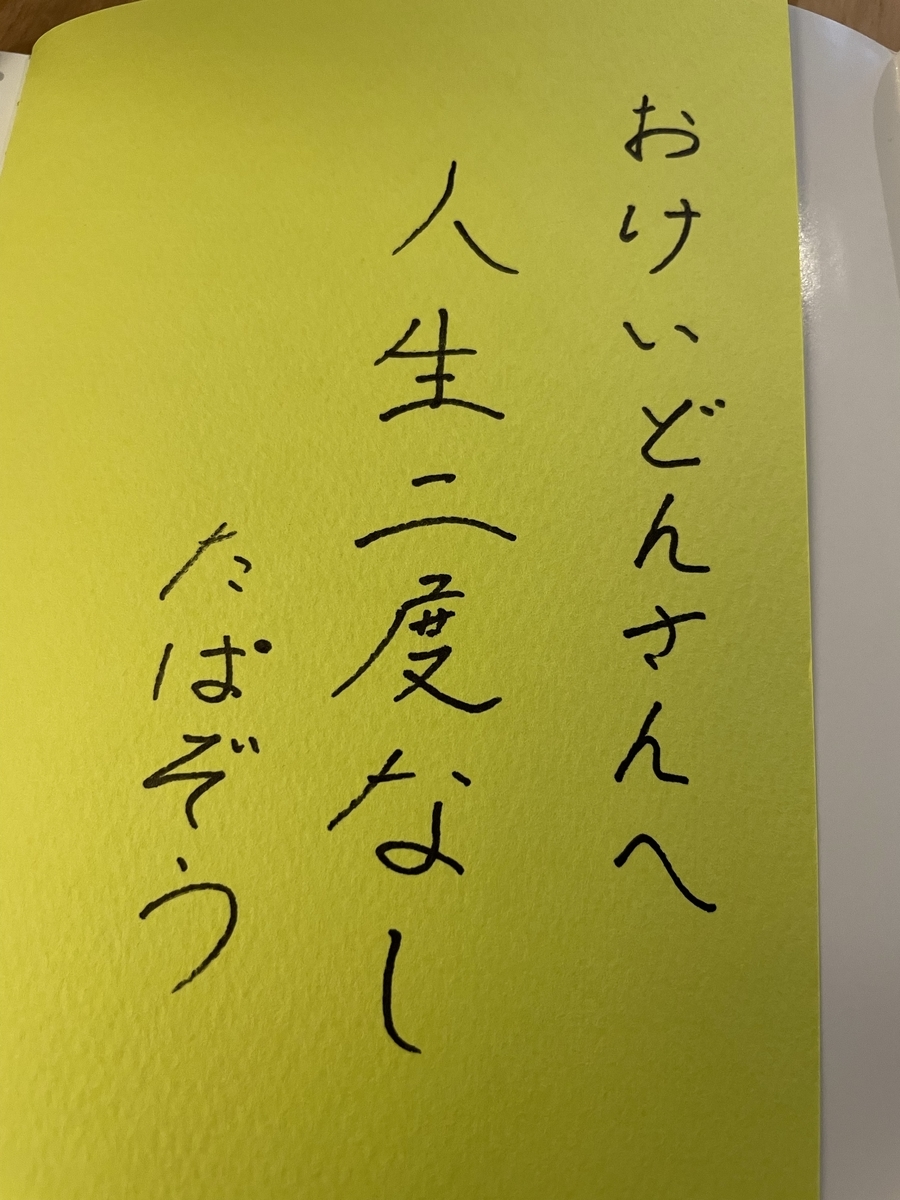 おけいどんさんへ
人生二度なし
たぱぞう